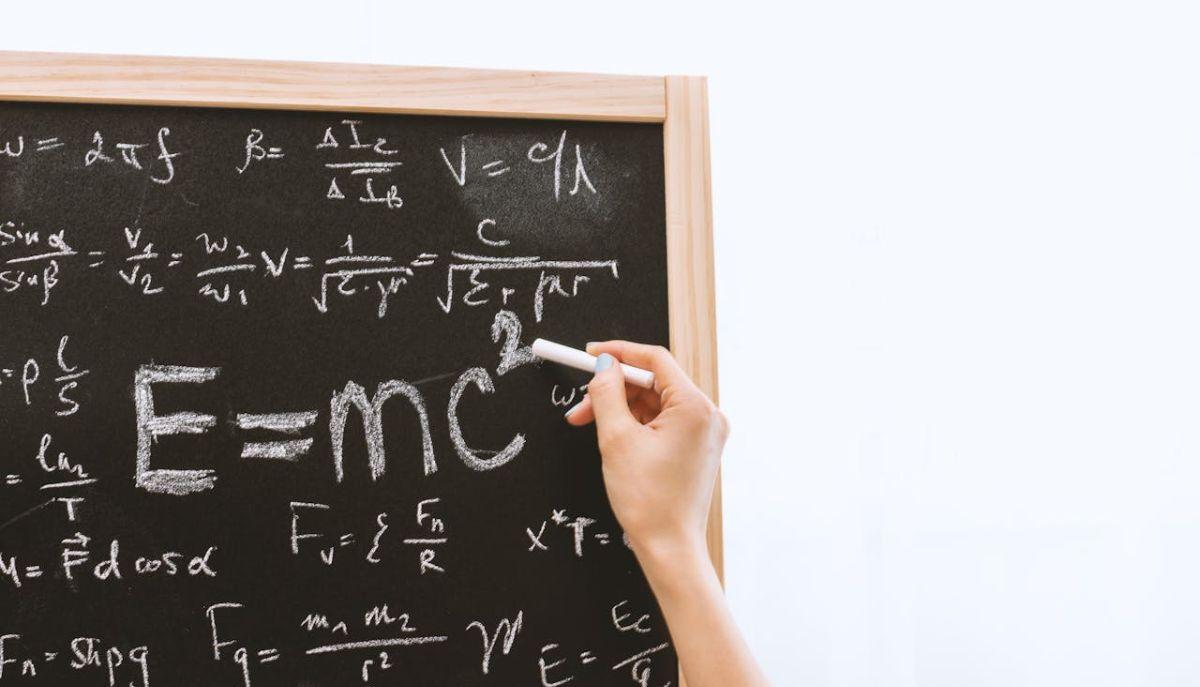 ω = 2πf β= ΔI₂/ΔI_B V = c/λ
sin α/sin β = v₁/v₂ = w₂/w₁ V = 1/√ε·γ = c/√εr μr
= ρ l/S
E=mc² ω=
= ln₂/T
F_v = ξ F_n/R x*T=
M= F⃗ d cos α
F_n = Shρg F_g = m₁ m₂/r² E = E_c/q